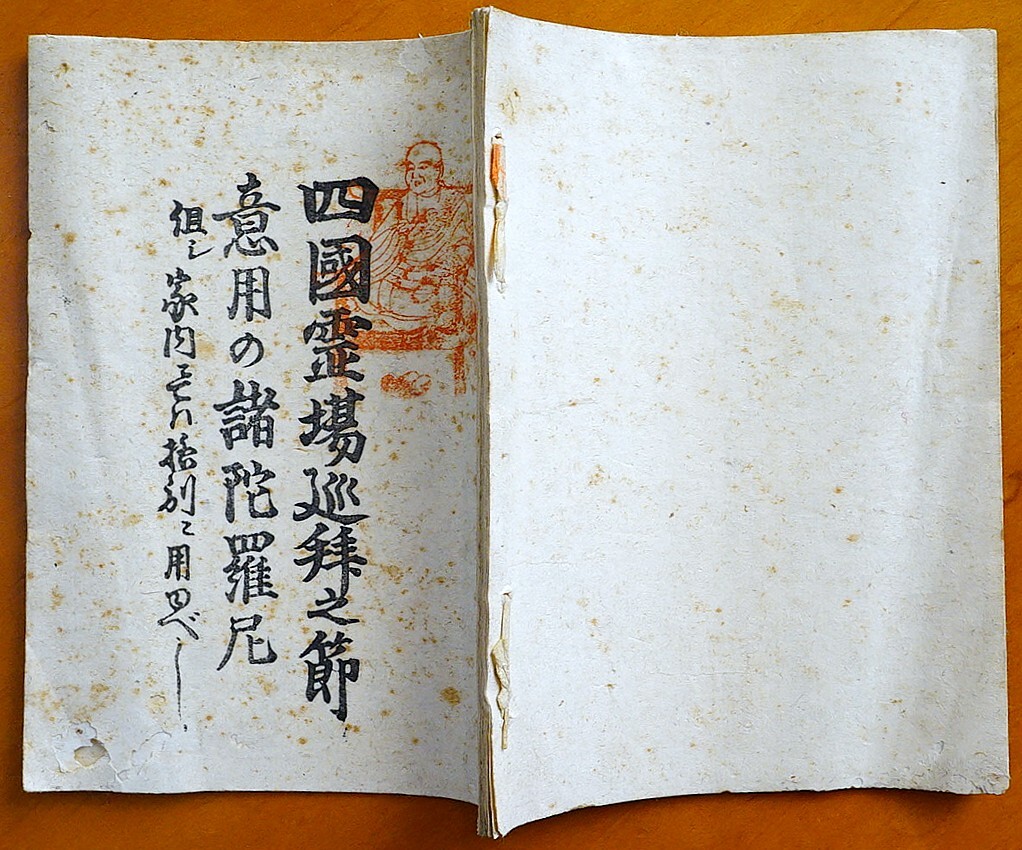 四國霊場巡拝之節
意用の諸陀羅尼
但シ家内ニてハ格別ニ用ゆべし